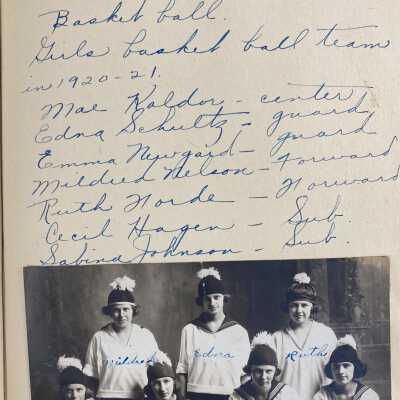 Basket ball.
Girls basket ball team
in 1920-21.
Mae Kaldor - center
Edna Schultz - guard
Emma Nywgard - guard
Mildred Nelson - Forward
Ruth Horde - Forward
Cecil Hagen - Sub.
Sabina Johnson - Sub.
Mildred Edna Ruth